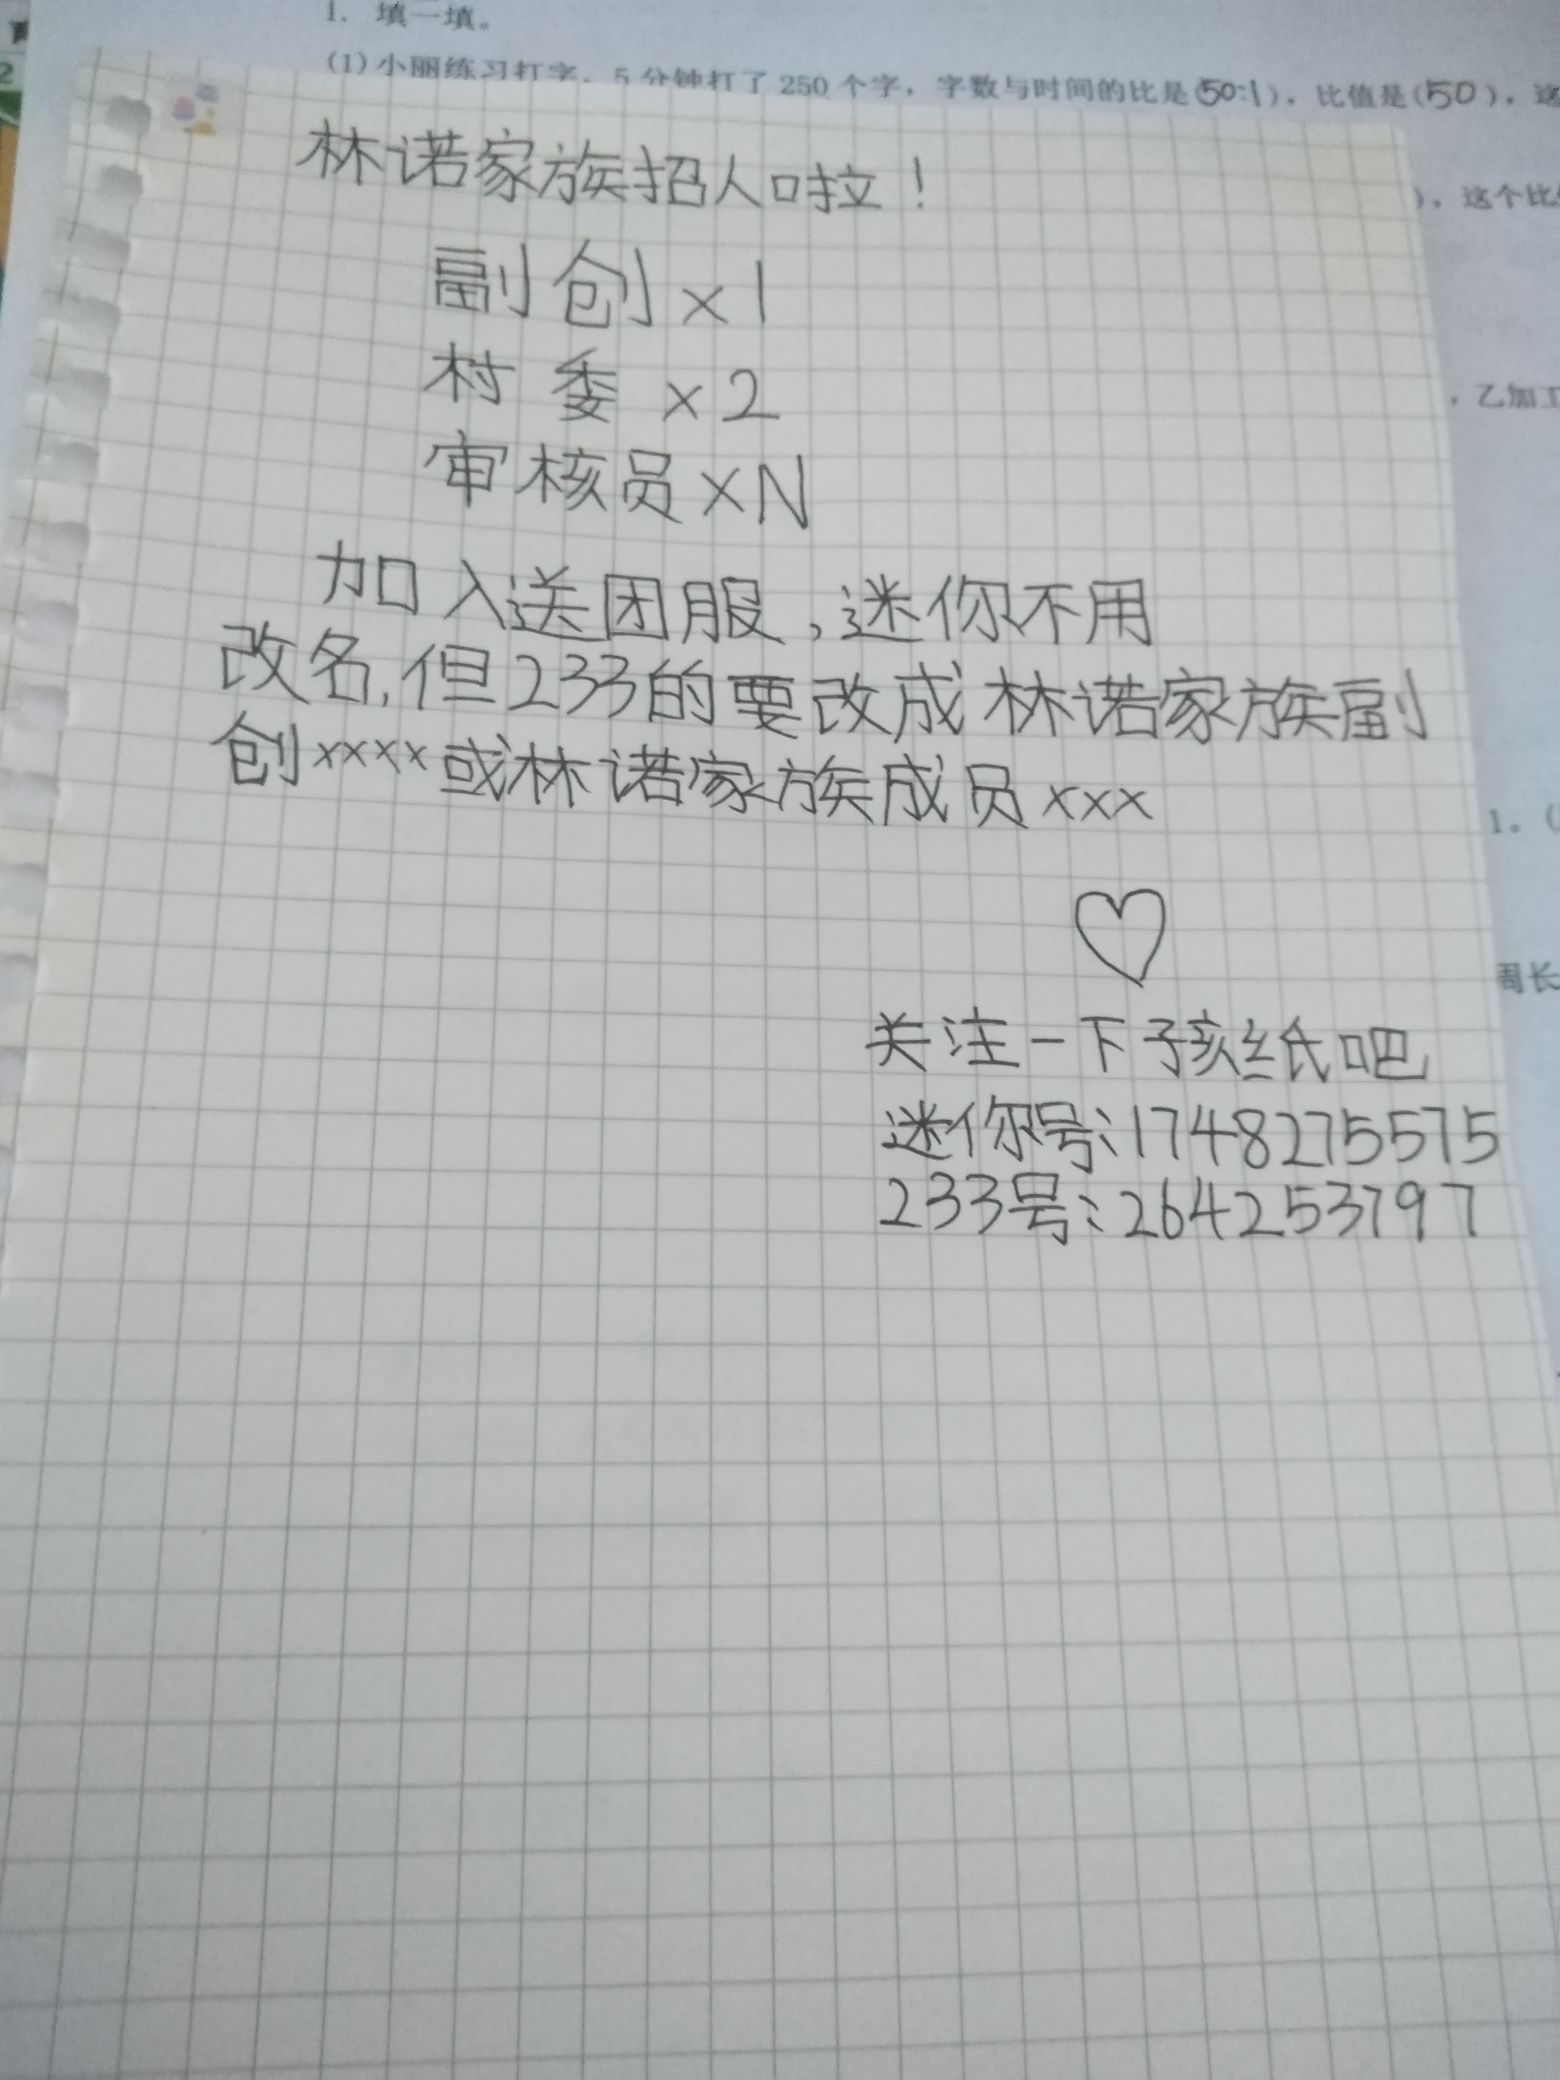 1. 填一填。
(1)小丽练习打字，5分钟打了250个字，字数与时间的比是(50:1)，比值是(50)，这
)，这个比
，乙加工
1。(
周长
2
林诺家族招人啦！
副创x1
村委x2
审核员xN
加入送团服，迷你不用
改名，但233的要改成林诺家族副
创xxxx或林诺家族成员xxx
关注一下孩纸吧
迷你号：1748275575
233号：264253797